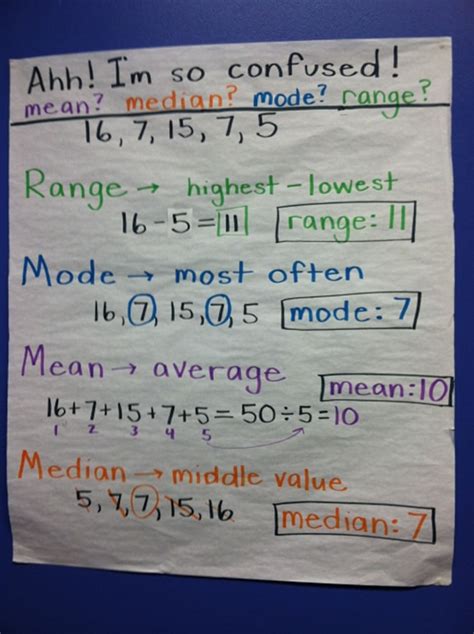 Ahh! I'm so confused!
mean? median? mode? range?
16, 7, 15, 7, 5
Range → highest - lowest
16 - 5 = 11 range: 11
Mode → most often
16, 7, 15, 7, 5 mode: 7
Mean → average
mean: 10
16+7+15+7+5 = 50 ÷ 5 = 10
1 2 3 4 5
Median → middle value
5, 7, 7, 15, 16
median: 7